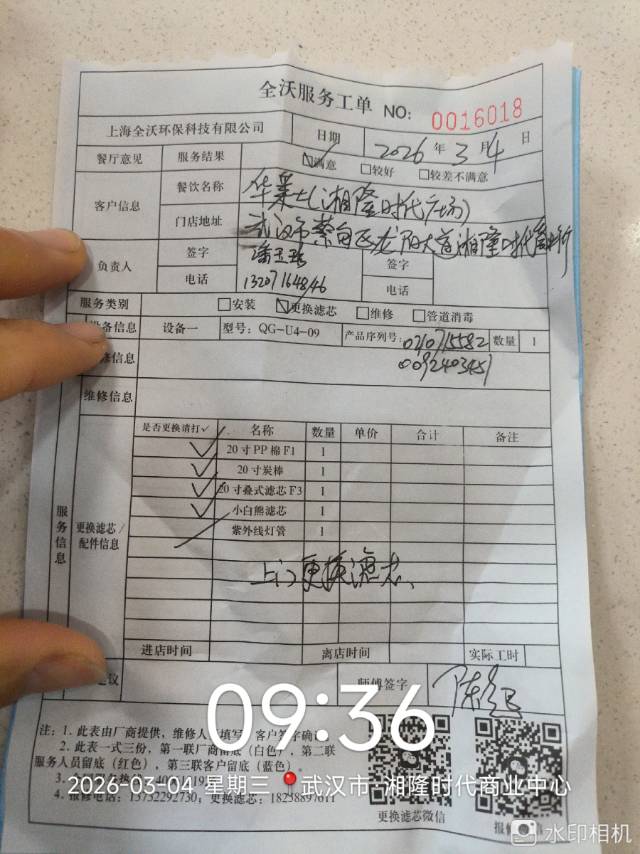 全沃服务工单 NO: 0016018
上海全沃环保科技有限公司 日期 2026 年 3 月 4 日
餐厅意见 服务结果 ☑满意 □较好 □较差不满意
客户信息 餐饮名称 华莱士(湘隆时代广场)
门店地址 武汉市蔡甸区龙阳大道湘隆时代
负责人 签字 签字
电话 13207164846 电话
服务类别 □安装 ☑更换滤芯 □维修 □管道消毒
设备信息 设备一 型号: QG-U4-09 产品序列号: 0210715582 数量 1
0092403451
修信息
维修信息
服务信息
更换滤芯/配件信息
是否更换请打✓ 名称 数量 单价 合计 备注
✓ 20寸PP棉F1 1
✓ 20寸炭棒 1
✓ 20寸叠式滤芯F3 1
✓ 小白熊滤芯 1
紫外线灯管 1
上门更换滤芯.
进店时间 离店时间 实际工时
议 师傅签字
09:36
注: 1. 此表由厂商提供, 维修人 填写, 客户签字确认
2. 此表一式三份, 第一联厂商留底(白色), 第二联
服务人员留底(红色), 第三联客户留底(蓝色)。
3.
2026-03-04 星期三 武汉市·湘隆时代商业中心
4. 维修电话: 13732292730; 更换滤芯:
更换滤芯微信
水印相机